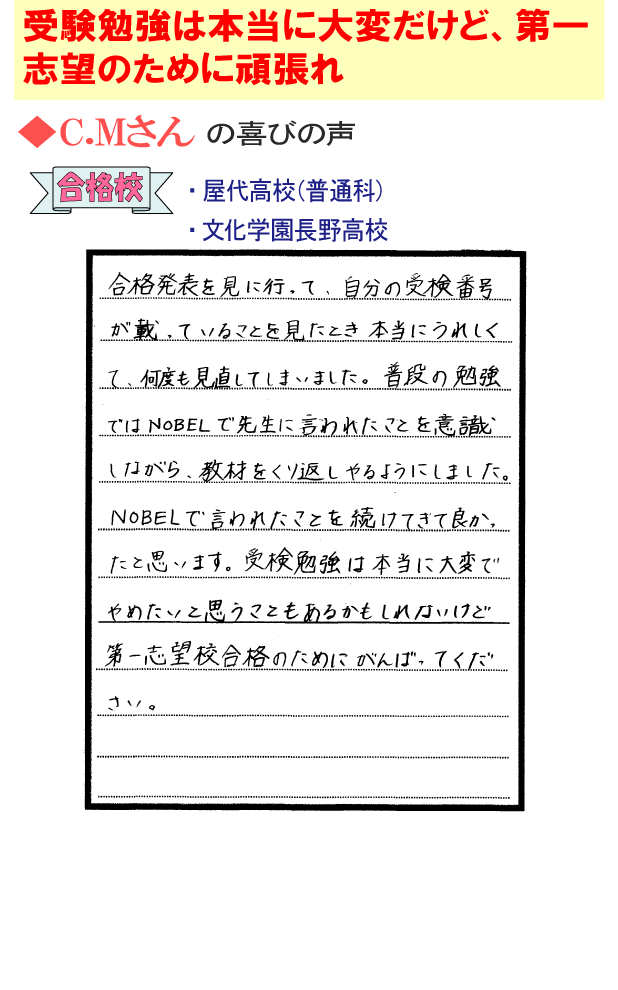 受験勉強は本当に大変だけど、第一
志望のために頑張れ
◆C.Mさん の喜びの声
合格校
・屋代高校(普通科)
・文化学園長野高校
合格発表を見に行って、自分の受検番号
が載っていることを見たとき本当にうれしく
て、何度も見直してしまいました。普段の勉強
ではNOBELで先生に言われたことを意識
しながら、教材をくり返しやるようにしました。
NOBELで言われたことを続けてきて良かっ
たと思います。受検勉強は本当に大変で
やめたいと思うこともあるかもしれないけど
第一志望校合格のためにがんばってくだ
さい。